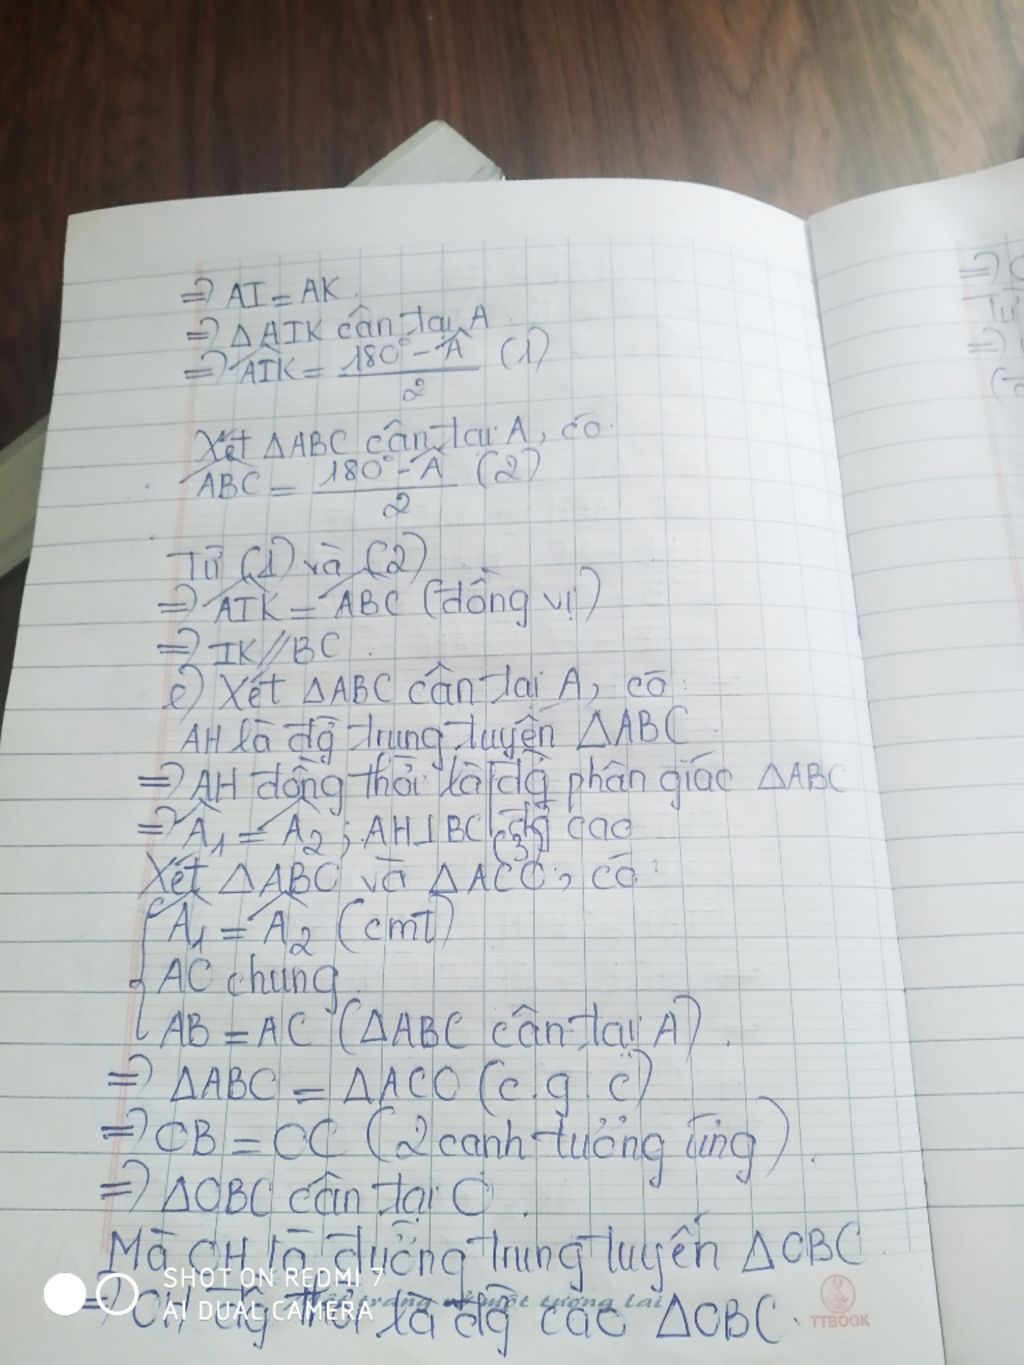 => AI = AK.
=> ΔAIK cân tại A
=> AIK = 180° - A / 2 (1)
Xét ΔABC cân tại A, có:
ABC = 180° - A / 2 (2)
Từ (1) và (2)
=> AIK = ABC (đồng vị)
=> IK // BC.
c) Xét ΔABC cân tại A, có:
AH là đg trung tuyến ΔABC.
=> AH đồng thời là đg phân giác ΔABC
=> A1 = A2 ; AH⊥BC đg cao
(3)
Xét ΔABO và ΔACO, có:
A1 = A2 (cmt)
AO chung.
AB = AC (ΔABC cân tại A).
=> ΔABO = ΔACO (c.g.c)
=> OB = OC (2 cạnh tương ứng).
=> ΔOBC cân tại O.
Mà OH là đường trung tuyến ΔOBC
=> OH đg thời là đg cao ΔOBC.
SHOT ON REDMI 7
AI DUAL CAMERA
một tương lai
TTBOOK